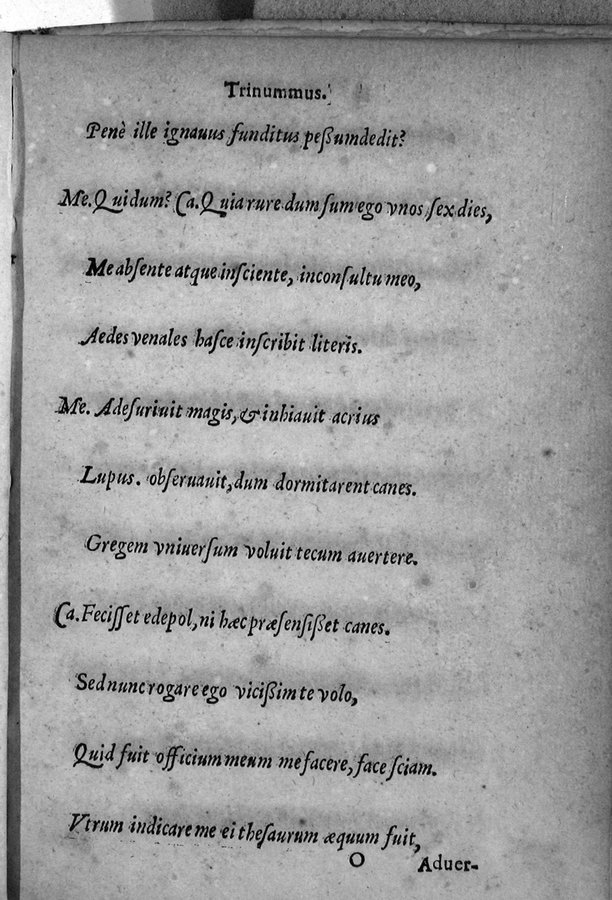 Trinummus.
Penè ille ignauus funditus peßumdedit?
Me. Quidum? Ca. Quia rure dum ſum ego vnos ſex dies,
Me abſente atque inſciente, inconſultu meo,
Aedes venales haſce inſcribit literis.
Me. Adeſuriuit magis, & inhiauit acrius
Lupus. obſeruauit, dum dormitarent canes.
Gregem vniuerſum voluit tecum auertere.
Ca. Feciſſet edepol, ni hæc præſenſißet canes.
Sed nunc rogare ego vicißim te volo,
Quid fuit officium meum me facere, face ſciam.
Vtrum indicare me ei theſaurum æquum fuit,
O Aduer-